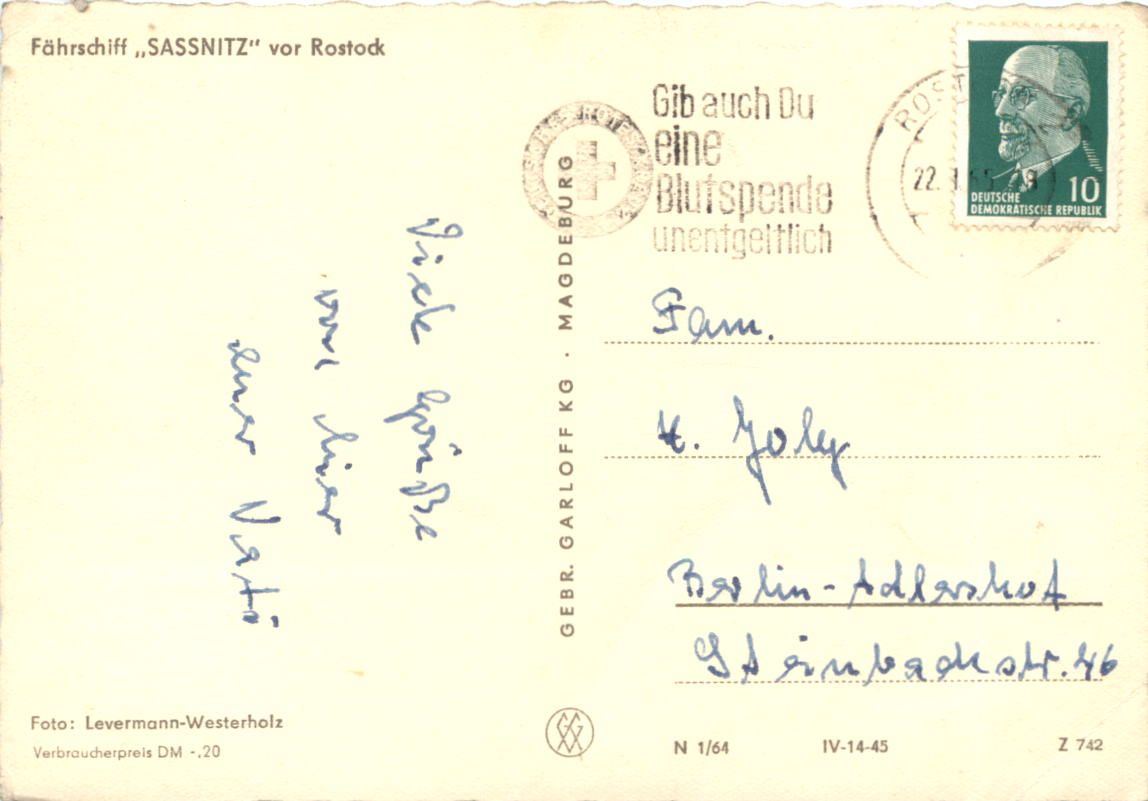 Fährschiff „SASSNITZ" vor Rostock
Gib auch Du
eine
Blutspende
unentgeltlich
ROST
22.
10
DEUTSCHE
DEMOKRATISCHE REPUBLIK
Viele Grüße
von hier
euer Vati
GEBR. GARLOFF KG · MAGDEBURG
Fam.
H. Joly
Berlin-Adlershof
Steinbachstr. 46
Foto: Levermann-Westerholz
Verbraucherpreis DM -,20
N 1/64 IV-14-45 Z 742